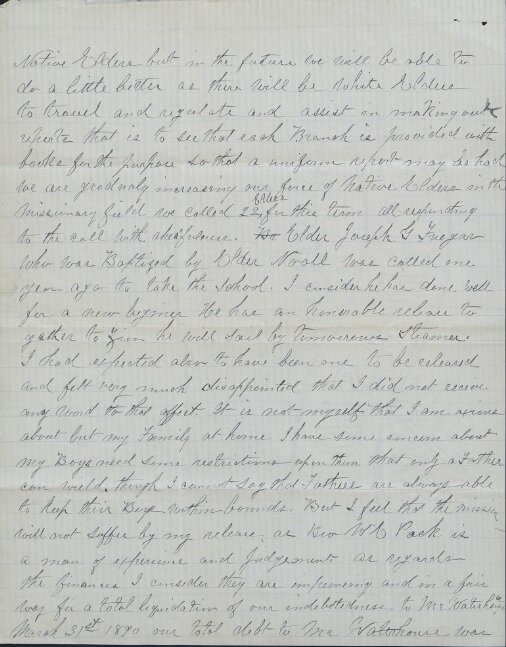 Native Elders but in the future we will be able to
do a little better as there will be white Elders
to travel and regulate and assist in making out
reports that is to see that each Branch is provided with
books for the purpose so that a uniform report may be had
we are gradualy increasing our force of Native Elders in the
missionary field we called 22 Elders for this term all responding
to the call with cheifulness. Elder Joseph G
who was Baptized by Elder Noall was called one
year ago to take the School. I consider he has done well
for a new begnner he has an honorable release to
gather to Zion he will sail by tomorrows Steamer.
I had expected also to have been one to be released
and felt very much disappointed that I did not receive
any word to that effect. It is not myself that I am
about but my Family at home I have some concern about
my Boys need some restrictions upon them that only a Father
can wield, though I cannot say that Fathers are always able
to keep their Boys within bounds. But I feel that the mission
will not soffer by my release, as Bro W E Pack is
a man of experience and Judgement as regards
the finances I consider they are improveing and in a fair
way for a total liquidation of our indebtedness to Mr Waterhouse
March 31st 1890 our total debt to Mr Waterhouse was